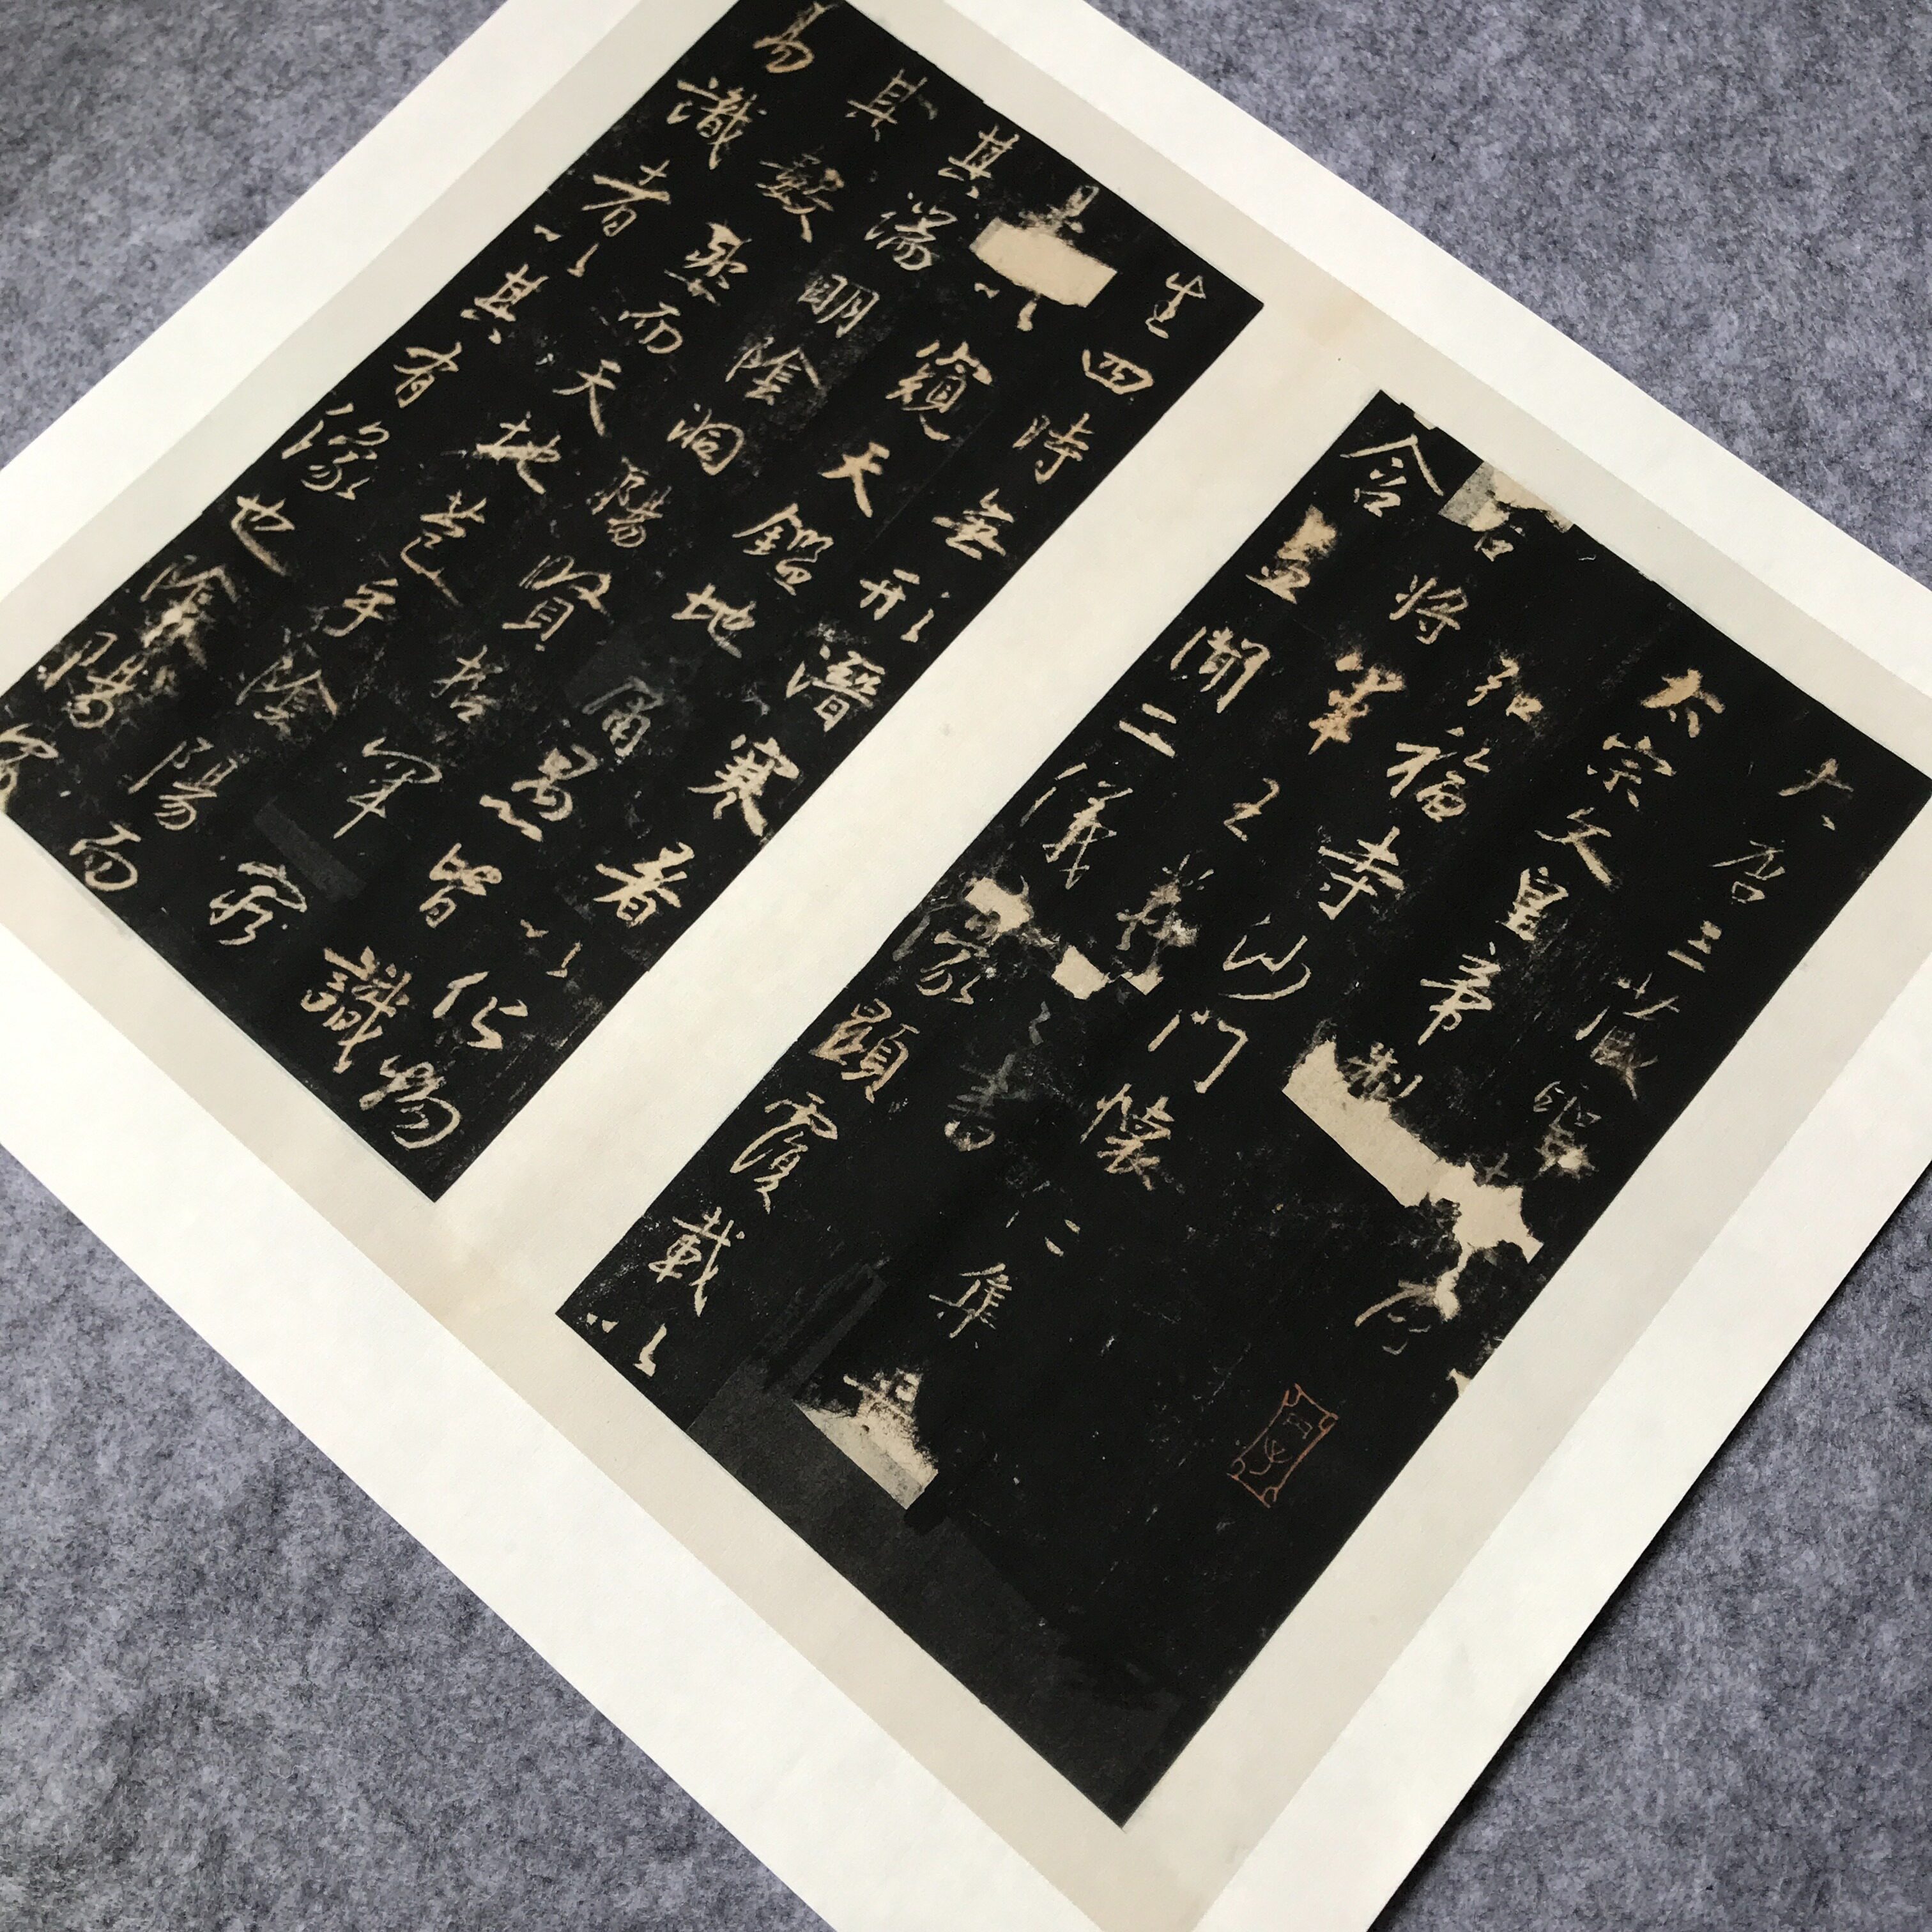 大唐三藏聖教序
太宗文皇帝製
弘福寺沙門懷仁集晉
右將軍王羲之書
含盖聞二儀有像顯覆載以
生四時無形潛寒暑以化物
是以窺天鑑地庸愚皆識
其端明陰洞陽賢哲罕窮
其數然而天地苞乎陰陽而
易識者以其有像也陰陽處